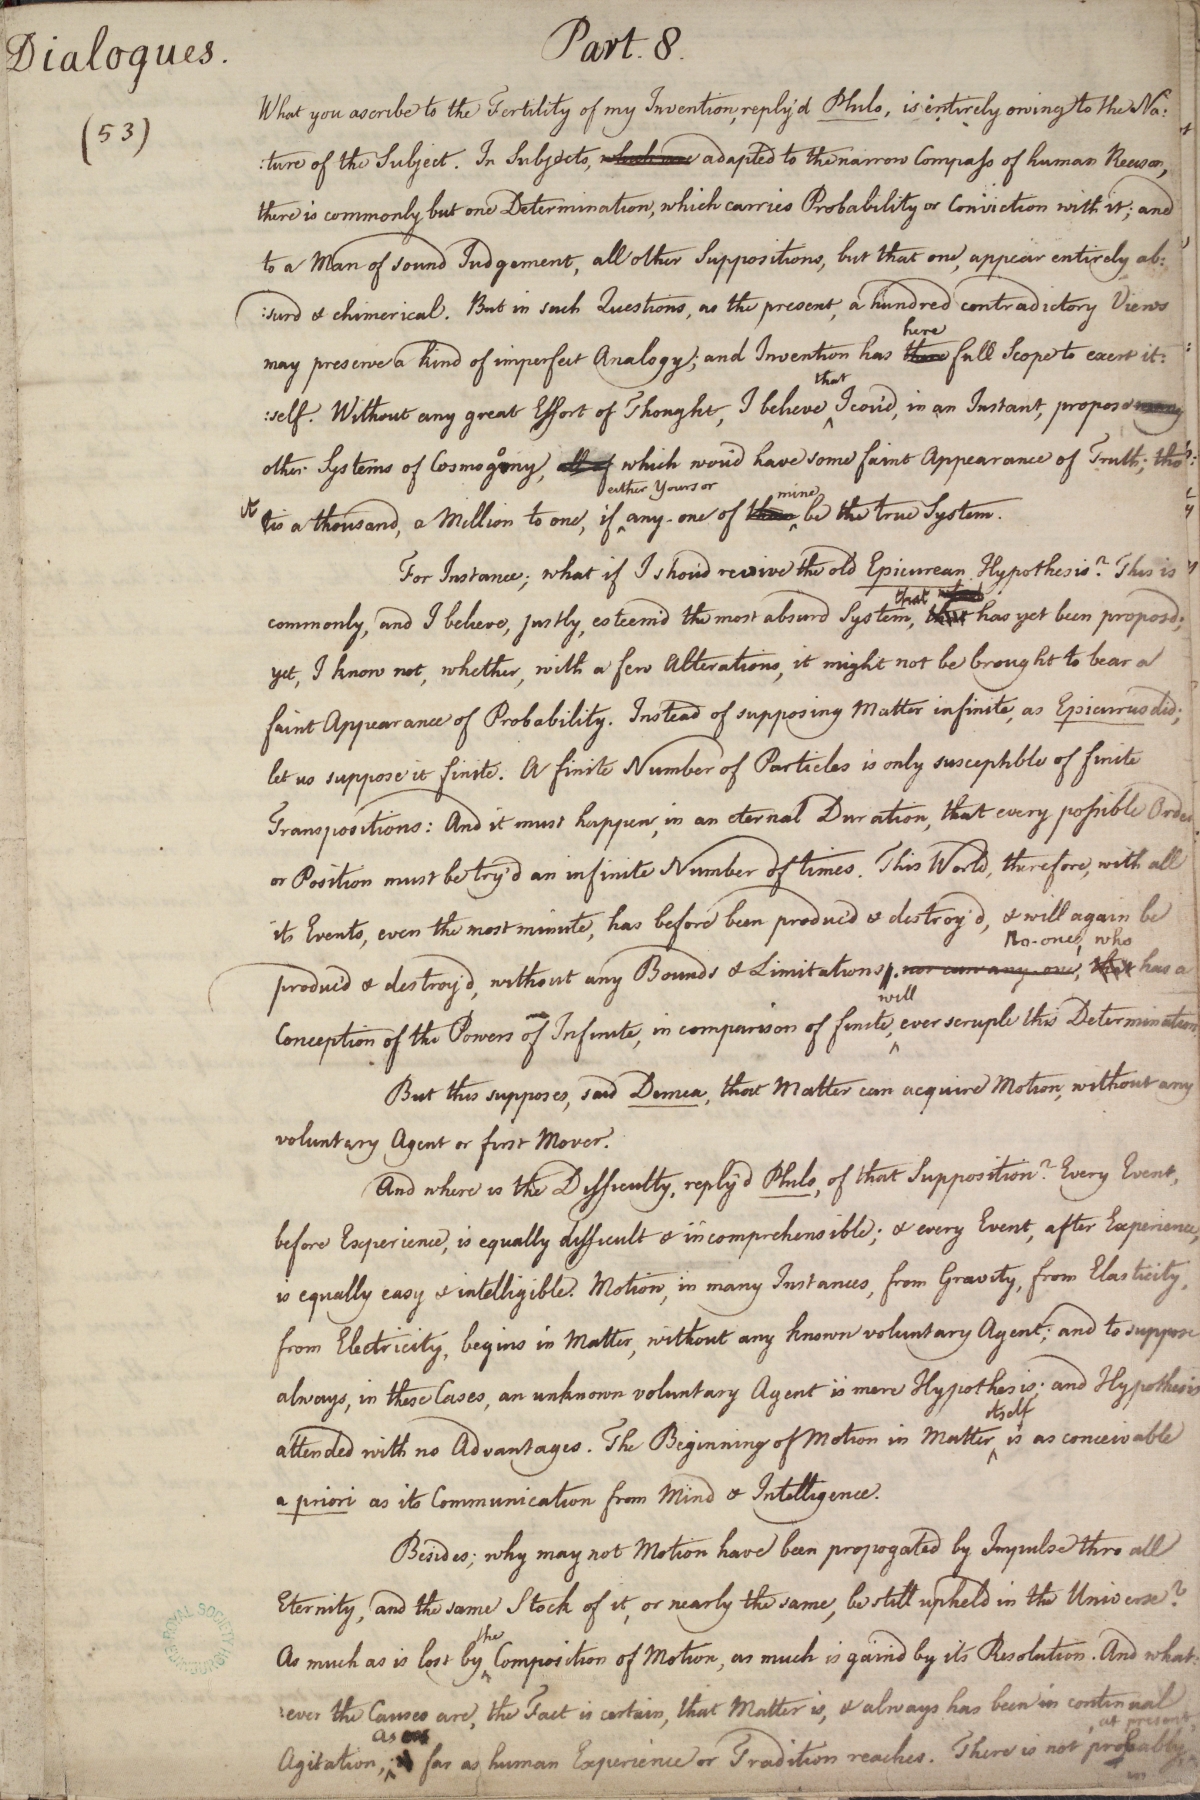 Dialogues.
Part. 8.
(53)
What you ascribe to the Fertility of my Invention, reply'd Philo, is entirely owing to the Na:
:ture of the Subject. In Subjects, which are adapted to the narrow Compass of human Reason,
there is commonly but one Determination, which carries Probability or Conviction with it; and
to a Man of sound Judgement, all other Suppositions, but that one, appear entirely ab:
:surd & chimerical. But in such Questions, as the present, a hundred contradictory Views
here
may preserve a kind of imperfect Analogy; and Invention has there full Scope to exert it:
that
:self. Without any great Effort of Thought, I believe ^ I cou'd, in an Instant, propose many
other Systems of Cosmogony, all of which wou'd have some faint Appearance of Truth; tho
either Yours or mine
it is a thousand, a Million to one, if ^ any-one of them ^ be the true System.
For Instance; what if I shou'd revive the old Epicurean Hypothesis? This is
that
commonly, and I believe, justly, esteem'd the most absurd System, that has yet been propos'd;
yet, I know not, whether, with a few Alterations, it might not be brought to bear a
faint Appearance of Probability. Instead of supposing Matter infinite, as Epicurus did;
let us suppose it finite. A finite Number of Particles is only susceptible of finite
Transpositions: And it must happen, in an eternal Duration, that every possible Order
or Position must be try'd an infinite Number of times. This World, therefore, with all
its Events, even the most minute, has before been produc'd & destroy'd, & will again be
No-one, who
produc'd & destroy'd, without any Bounds & Limitations. nor can any one, that has a
will
Conception of the Powers of Infinite, in comparison of finite, ^ ever scruple this Determination
But this supposes, said Demea, that Matter can acquire Motion, without any
voluntary Agent or first Mover.
And where is the Difficulty, reply'd Philo, of that Supposition? Every Event,
before Experience, is equally difficult & incomprehensible; & every Event, after Experience,
is equally easy & intelligible. Motion, in many Instances, from Gravity, from Elasticity,
from Electricity, begins in Matter, without any known voluntary Agent; and to suppose
always, in these Cases, an unknown voluntary Agent is mere Hypothesis; and Hypothesis
itself
attended with no Advantages. The Beginning of Motion in Matter ^ is as conceivable
a priori as its Communication from Mind & Intelligence.
Besides; why may not Motion have been propogated by Impulse thro all
Eternity, and the same Stock of it, or nearly the same, be still upheld in the Universe?
the
As much as is lost by ^ Composition of Motion, as much is gain'd by its Resolution. And what:
:ever the Causes are, the Fact is certain, that Matter is, & always has been in continual
as
at present,
Agitation, ^ far as human Experience or Tradition reaches. There is not probably,
in
ROYAL SOCIETY